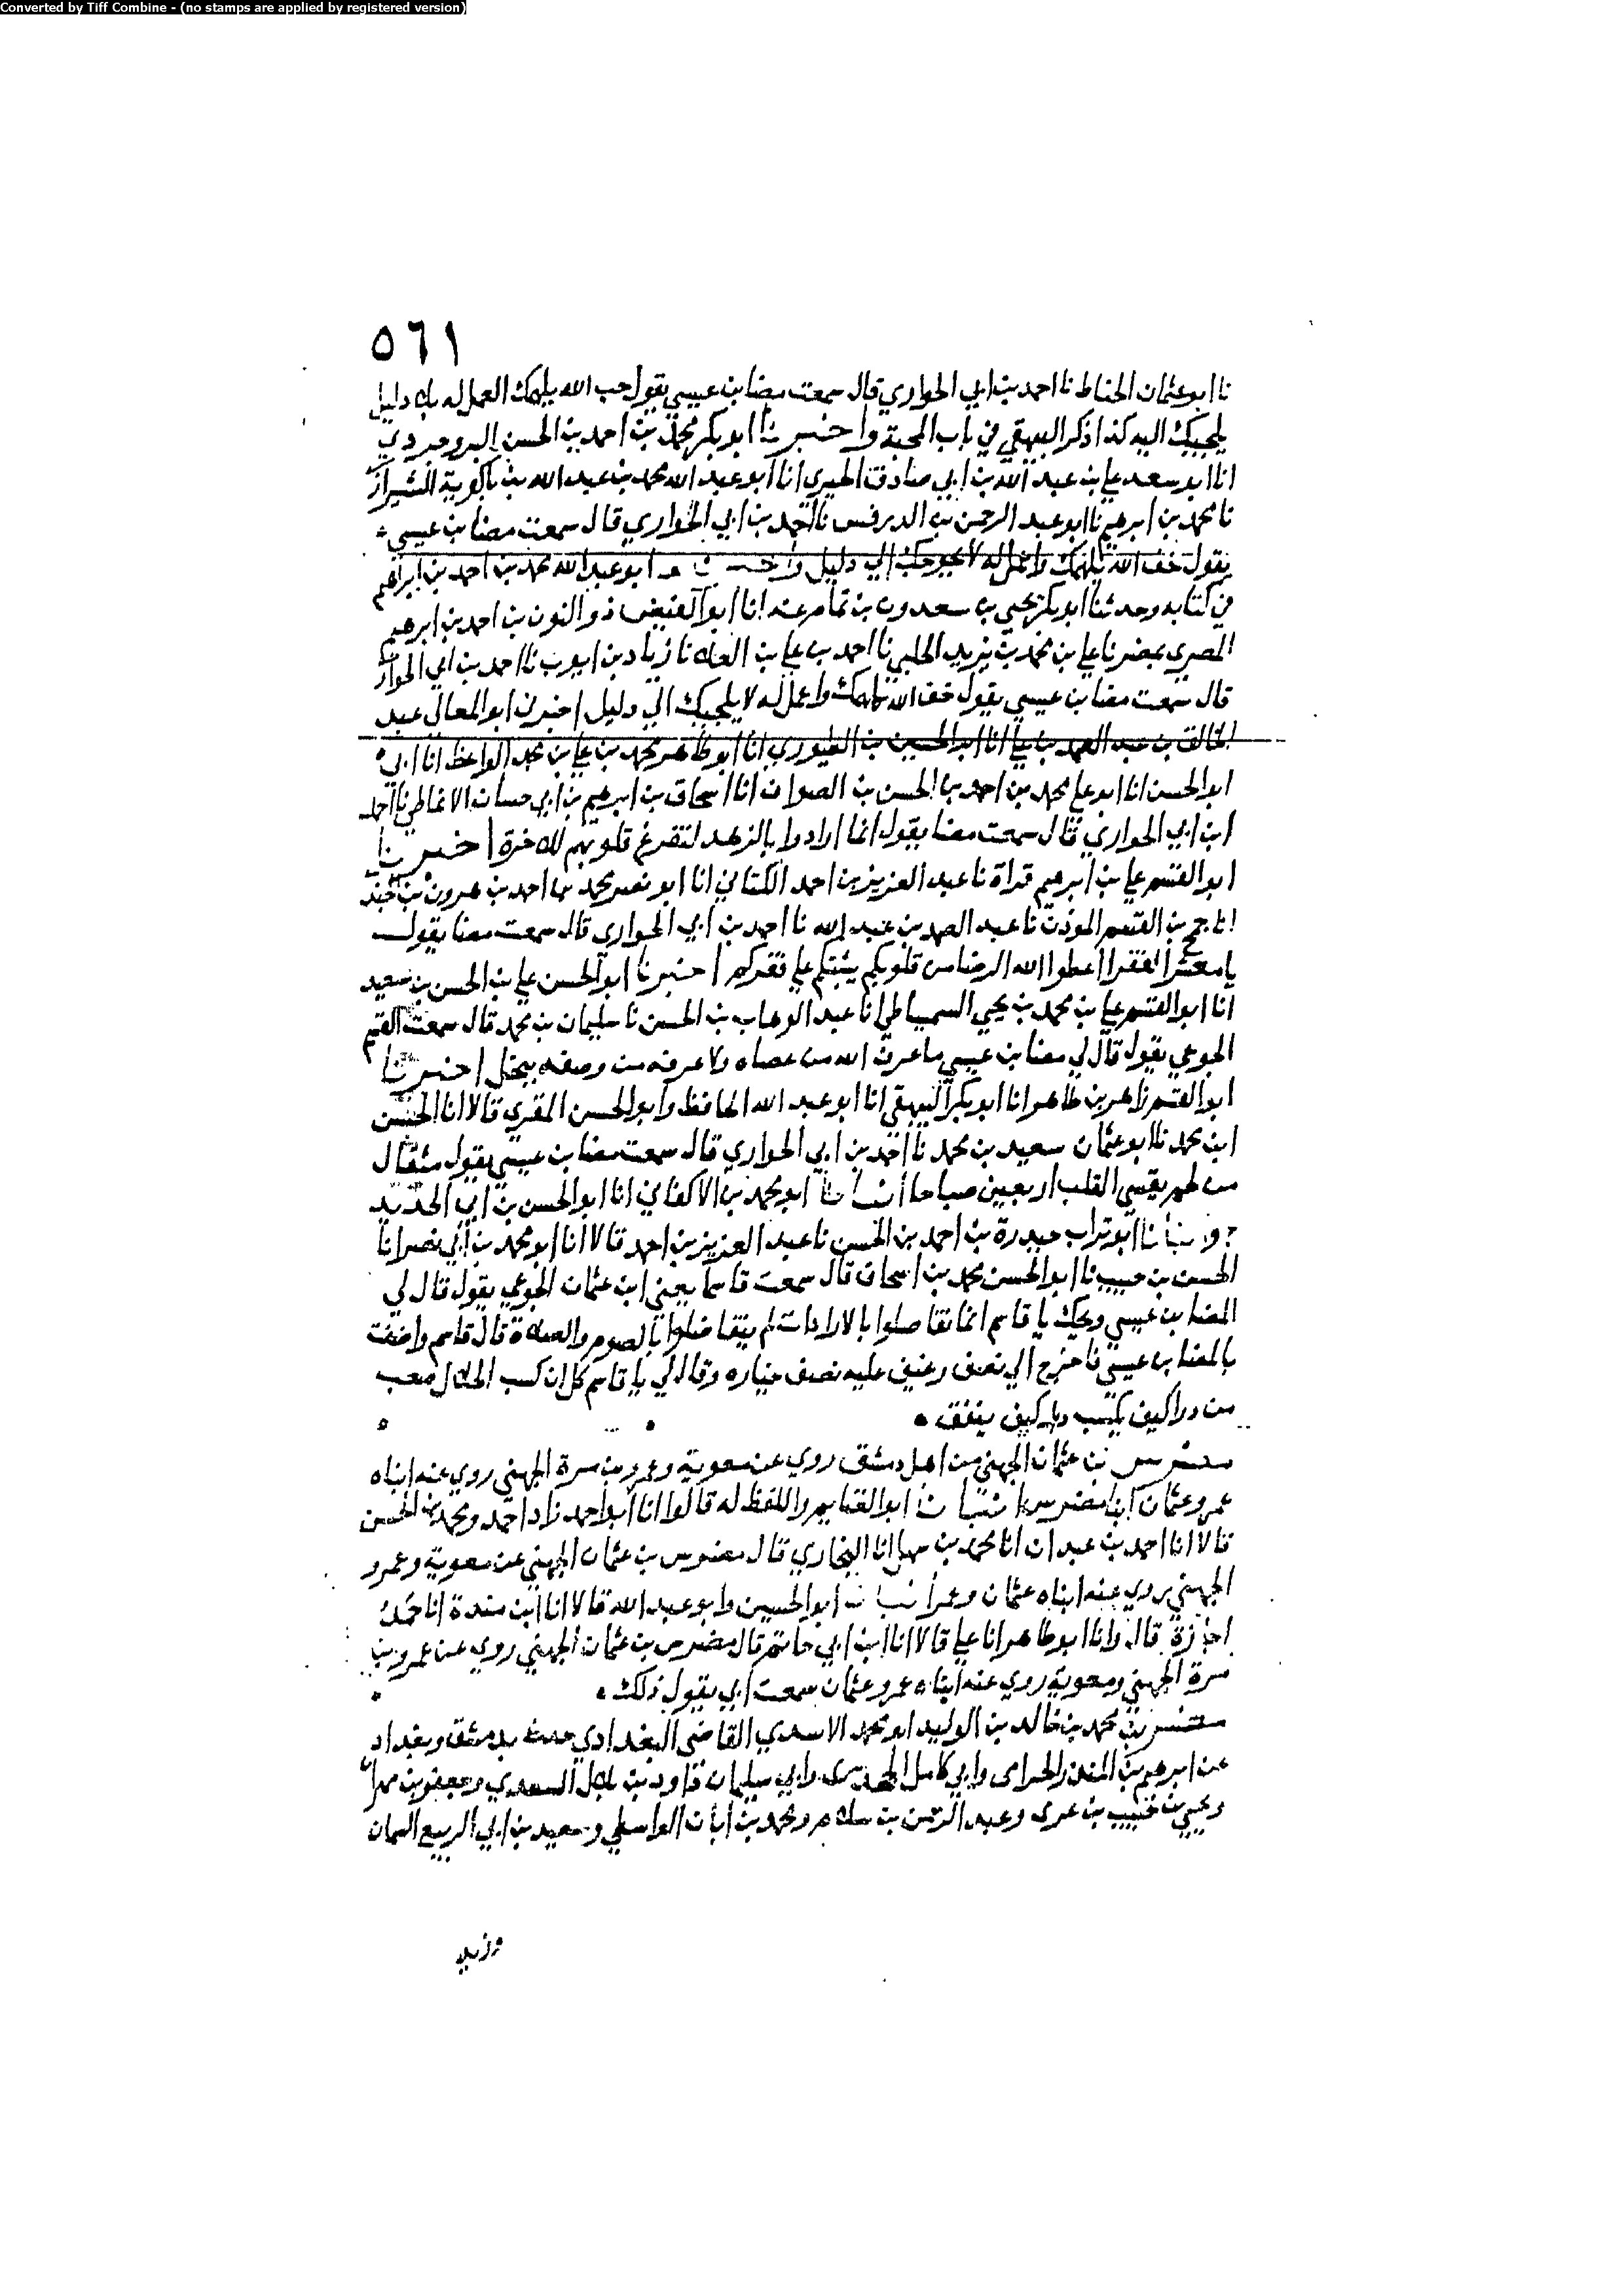 Converted by Tiff Combine - (no stamps are applied by registered version)
٥٦١
نا ابو عثمان الحناط نا احمد بن ابي الحواري قال سمعت مضا بن عيسي يقول حب الله يلهمك العمل له بلا دليل
يلجيك اليه كذا ذكر البيهقي في باب المحبة واخبرنا ابو بكر محمد بن احمد بن الحسن البروجردي
انا ابو سعد علي بن عبد الله بن ابي صادق الحيري انا ابو عبد الله محمد بن عبد الله بن باكوية الشيرازي
نا محمد بن ابرهيم نا ابو عبد الرحمن بن الدرفس نا احمد بن ابي الحواري قال سمعت مضا بن عيسي
يقول خف الله يلهمك واعمل له لا يحوجك الي دليل ابو عبد الله محمد بن احمد بن ابراهيم
في كتابه وحدثنا ابو بكر يحيي بن سعدون بن تمام عنه انا ابو الفيض ذو النون بن احمد بن ابرهيم
المصري بمصر نا علي بن محمد بن يزيد الحلبي نا احمد بن علي بن العلاء نا زياد بن ايوب نا احمد بن ابي الحواري
قال سمعت مضا بن عيسي يقول خف الله يلهمك واعمل له لا يلجيك الي دليل اخبرنا ابو المعالي عبد
الخالق بن عبد الصمد بن علي انا ابو الحسين بن الطيوري انا ابو طاهر محمد بن علي بن محمد الواعظ انا ابي
ابو الحسن انا ابو علي محمد بن احمد بن الحسن بن الصواف انا اسحاق بن ابرهيم بن ابي حسان الانماطي نا احمد
ابن ابي الحواري قال سمعت مضا يقول انما ارادوا بالزهد لتفرغ قلوبهم للاخرة اخبرنا
ابو القسم علي بن ابرهيم قراة نا عبد العزيز بن احمد الكتاني انا ابو نصر محمد بن احمد بن هرون بن الجندي
انا جمح بن القسم الموذن نا عبد الصمد بن عبد الله نا احمد بن ابي الحواري قال سمعت مضا يقول
يا معشر الفقرا اعطوا الله الرضا من قلوبكم يثبتكم علي فقركم اخبرنا ابو الحسن علي بن الحسن بن سعيد
انا ابو القسم علي بن محمد بن يحيي السميساطي انا عبد الوهاب بن الحسن نا سليمان بن محمد قال سمعت القسم
الجوعي يقول قال لي مضا بن عيسي ما عرف الله من عصاه ولا عرفه من وصفه ببخل اخبرنا
ابو القسم زاهر بن طاهر انا ابو بكر البيهقي انا ابو عبد الله الحافظ وابو الحسن المقري قالا انا الحسن
ابن محمد نا ابو عثمان سعيد بن محمد نا احمد بن ابي الحواري قال سمعت مضا بن عيسي يقول مثقال
من لحم يقسي القلب اربعين صباحا انبانا ابو محمد بن الاكفاني انا ابو الحسن بن ابي الحديد
ح وانبانا ابو تراب حيدرة بن احمد بن الحسن نا عبد العزيز بن احمد قالا انا ابو محمد بن ابي نصر انا
الحسن بن حبيب نا ابو الحسن محمد بن اسحاق قال سمعت قاسما يعني ابن عثمان الجوعي يقول قال لي
المضا بن عيسي ويحك يا قاسم انما تفاضلوا بالارادات لم يتفاضلوا بالصوم والصلاة قال قاسم واضفت
بالمضا بن عيسي فاخرج الي نصف رغيف عليه نصف خياره وقال لي يا قاسم كل ان كسب الحلال صعب
من درا كيف يكتسب درا كيف ينفق
مضرس بن عثمان الجهني من اهل دمشق روي عن معوية وعمرو بن مرة الجهني روي عنه ابناه
عمرو عثمان ابنا مضرس انبانا ابو الغنايم واللفظ له قالوا انا ابو احمد زاد احمد ومحمد بن الحسن
قالا انا احمد بن عبدان انا محمد بن سهل انا البخاري قال مضرس بن عثمان الجهني عن معوية وعمرو
الجهني روي عنه ابناه عثمان وعمر انبانا ابو الحسين وابو عبد الله قالا انا ابن مندة انا حمد
اجازة قال وانا ابو طاهر انا علي قالا انا ابن ابي حاتم قال مضرس بن عثمان الجهني روي عن عمرو بن
مرة الجهني ومعوية روي عنه ابناه عمرو عثمان سمعت ابي يقول ذلك
مضر بن محمد بن خالد بن الوليد ابو محمد الاسدي القاضي البغدادي حدث بدمشق وبغداد
عن ابرهيم بن المنذر الحزامي وابي كامل الجحدري وابي سليمان داود بن بلال السعدي وجعفر بن مهران
ويحيي بن حبيب بن عربي وعبد الرحمن بن سلام ومحمد بن ابان الواسطي وسعيد بن ابي الربيع السمان
ويزيد